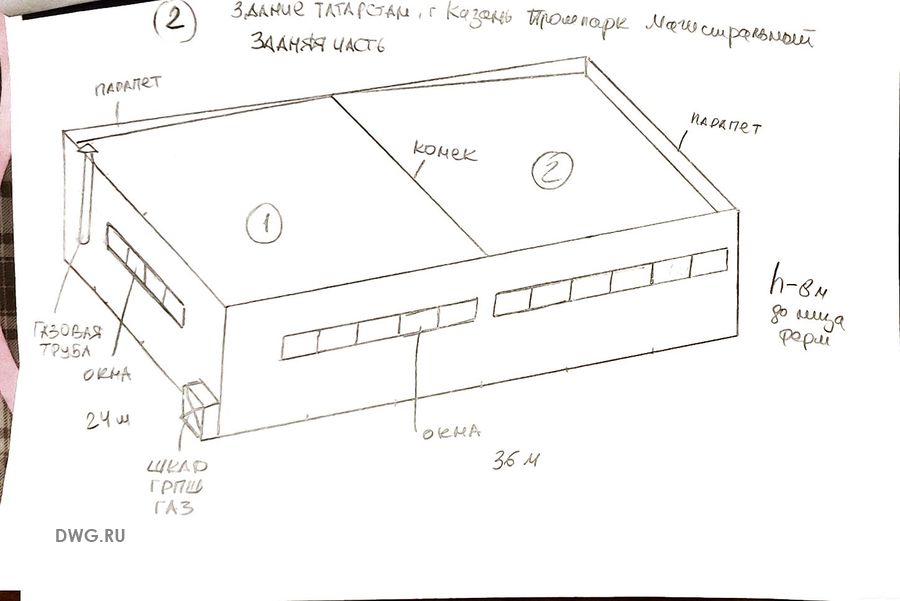 2
ЗДАНИЕ ТАТАРСТАН, г Казань Промпарк Магистральный
ЗАДНЯЯ ЧАСТЬ
ПАРАПЕТ
ПАРАПЕТ
КОНЕК
2
1
h-8м
до низа
ферм
ГАЗОВАЯ
ТРУБА
ОКНА
24 м
ОКНА
36 м
ШКАФ
ГРПШ
ГАЗ
DWG.RU